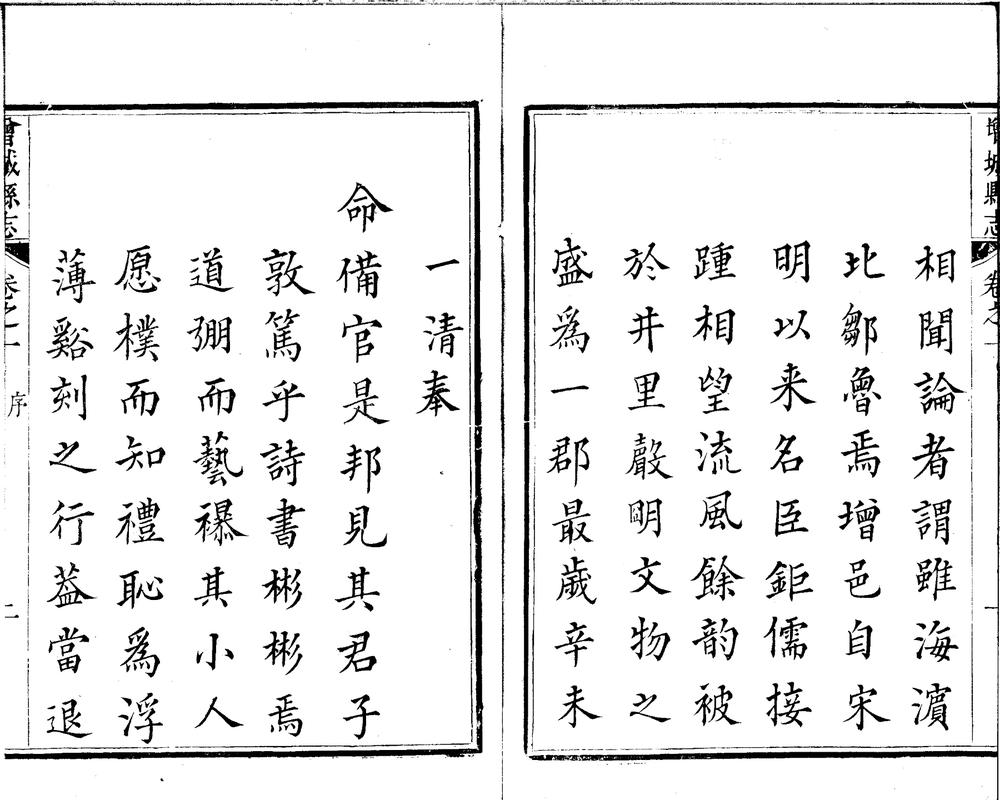 增城縣志
卷之一
相聞論者謂雖海濵
北鄒魯焉增邑自宋
明以来名臣鉅儒接
踵相望流風餘韵被
於井里聲明文物之
盛爲一郡最歲辛未
一清奉
命備官是邦見其君子
敦篤乎詩書彬彬焉
道弸而藝襮其小人
愿樸而知禮恥爲浮
薄谿刻之行葢當退
增城縣志
卷之一
序
二